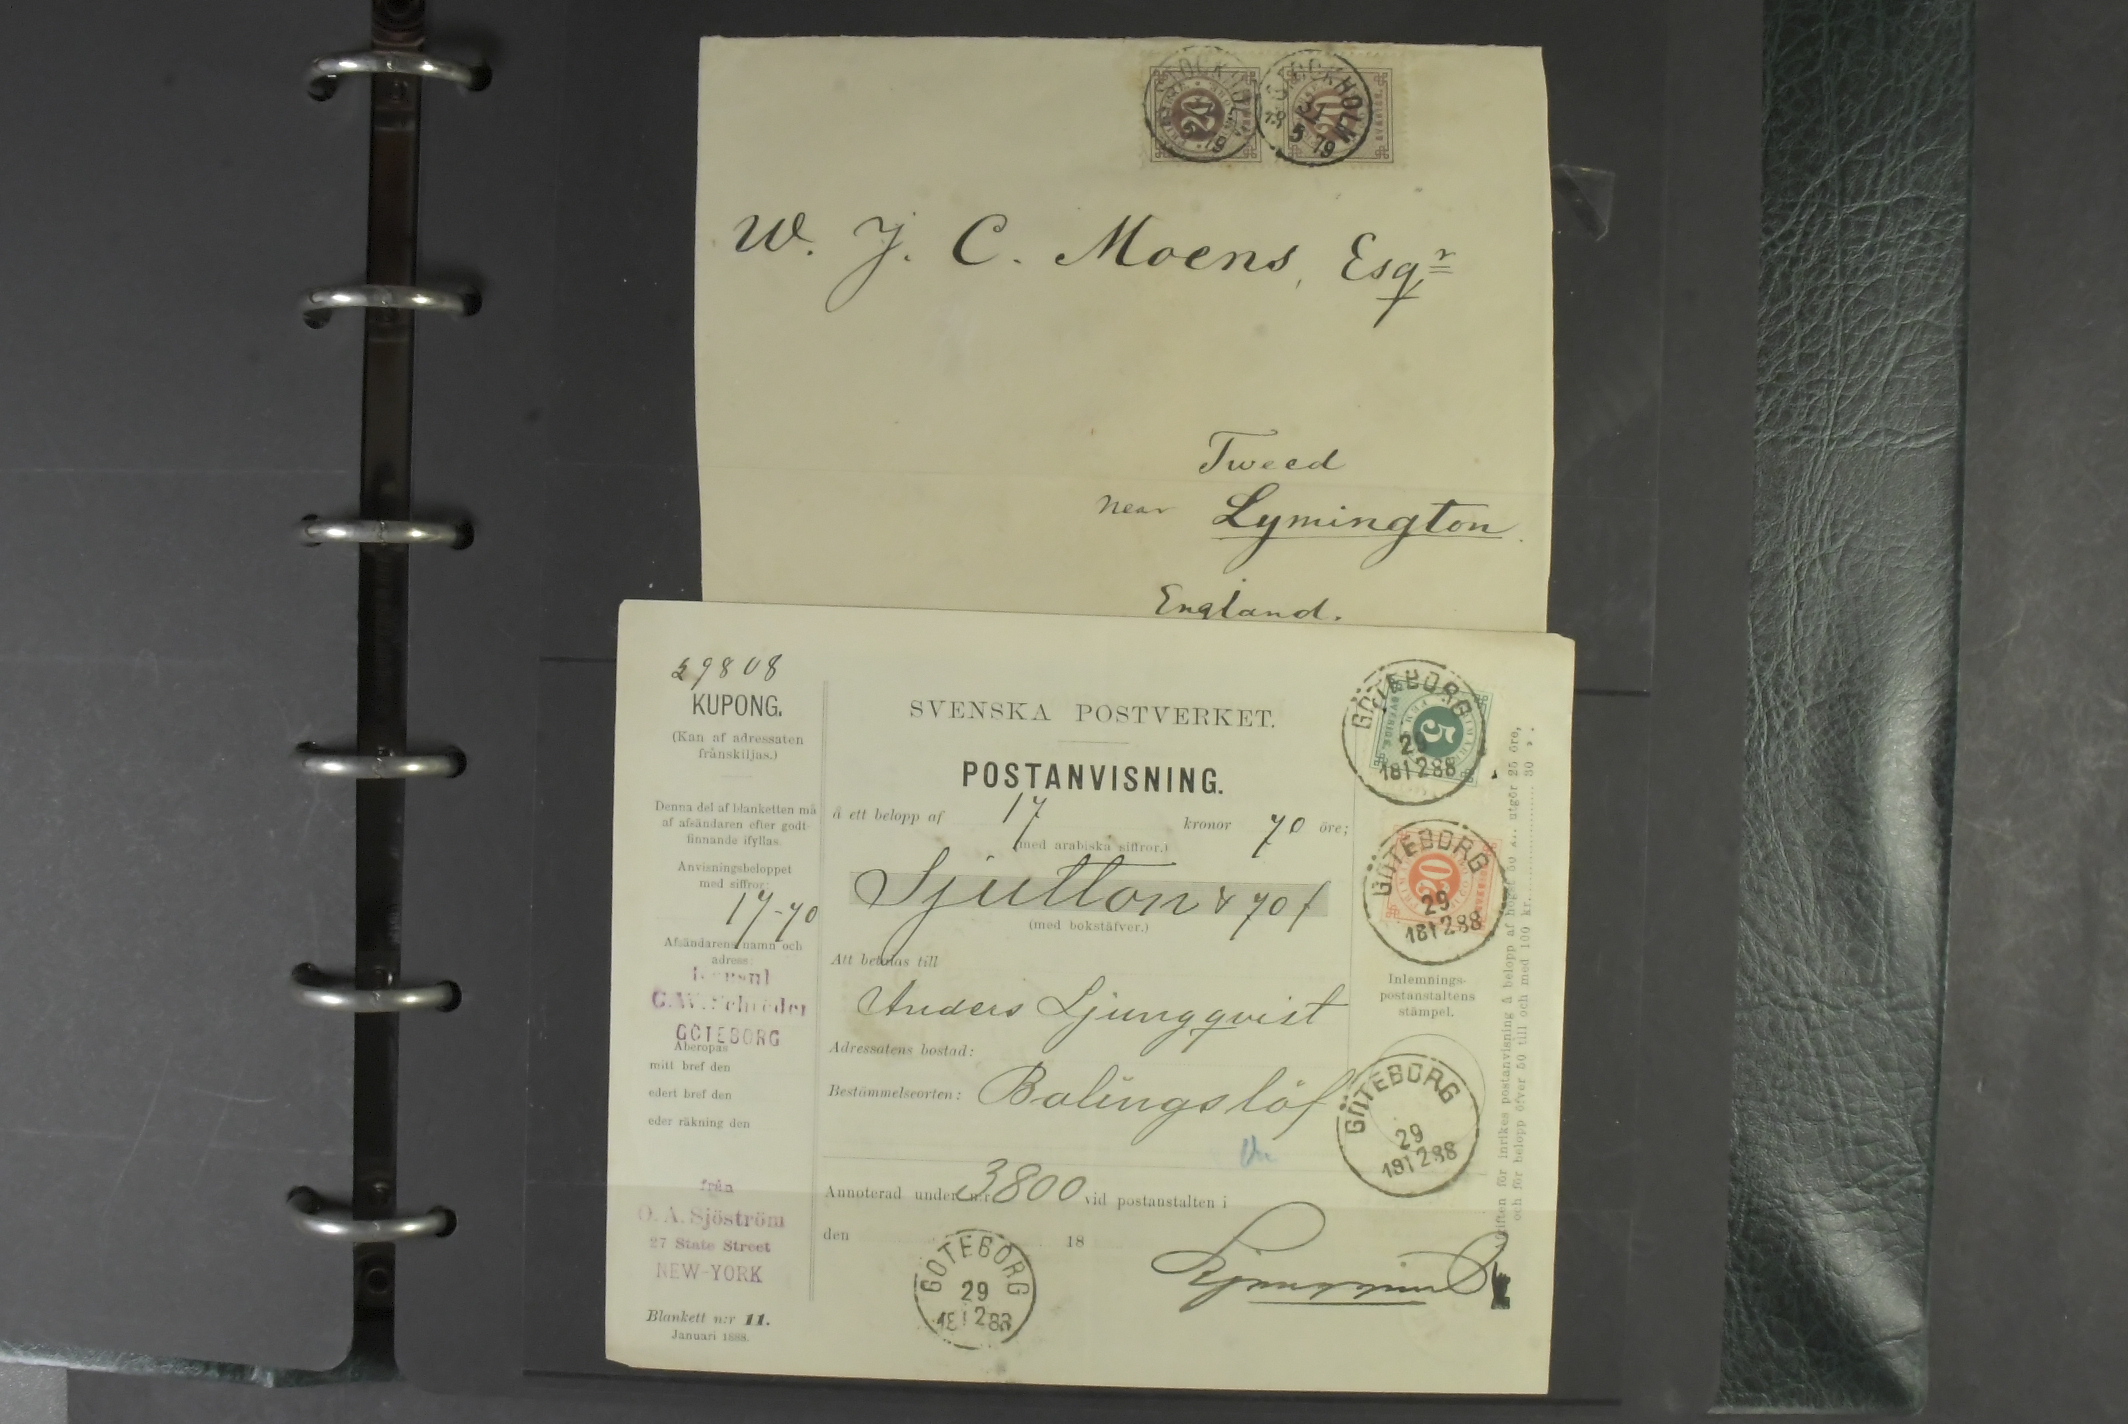 STOCKHOLM
STOCKHOLM
31
5
79
20
20
W. J. C. Moens, Esqr
Tweed
near Lymington
England.
29808
KUPONG.
(Kan af adressaten
frånskiljas.)
Denna del af blanketten må
af afsändaren efter godt-
finnande ifyllas.
Anvisningsbeloppet
med siffror:
17-70
Afsändarens namn och
adress:
Konsul
C. W. Schröder
GÖTEBORG
Åberopas
mitt bref den
edert bref den
eder räkning den
från
O. A. Sjöström
27 State Street
NEW-YORK
Blankett n:r 11.
Januari 1888.
SVENSKA POSTVERKET.
POSTANVISNING.
å ett belopp af 17 kronor 70 öre;
(med arabiska siffror.)
Sjutton & 70/
(med bokstäfver.)
Att betalas till
Anders Ljungqvist
Adressatens bostad:
Bestämmelseorten: Balingslöf
Annoterad under n:r 3800 vid postanstalten i
den 18
GÖTEBORG
29
1812 88
GÖTEBORG
29
1812 88
5
GÖTEBORG
29
1812 88
20
Inlemnings-
postanstaltens
stämpel.
GÖTEBORG
29
1812 88
Afgiften för inrikes postanvisning å belopp af högst 50 kr. utgör 25 öre,
och för belopp öfver 50 till och med 100 kr. 30 „ .